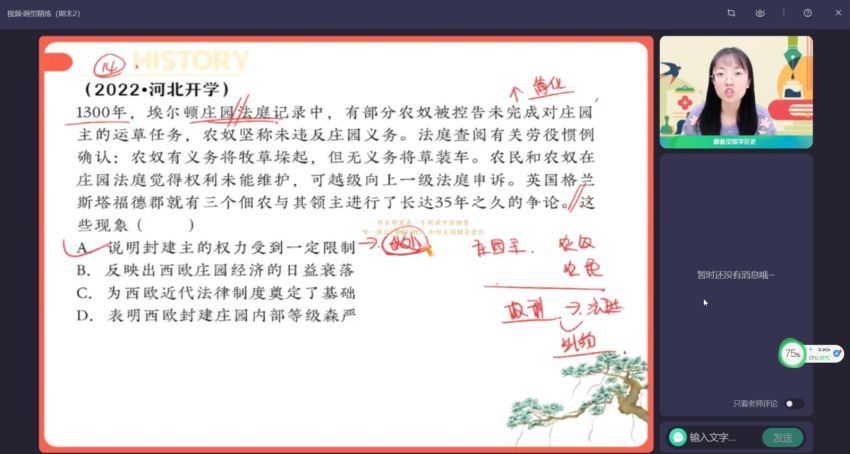 视频·题型精练（期末2）
14 HISTORY
（2022·河北开学）
简化
1300年，埃尔顿庄园法庭记录中，有部分农奴被控告未完成对庄园
主的运草任务，农奴坚称未违反庄园义务。法庭查阅有关劳役惯例
确认：农奴有义务将牧草垛起，但无义务将草装车。农民和农奴在
庄园法庭觉得权利未能维护，可越级向上一级法庭申诉。英国格兰
斯塔福德郡就有三个佃农与其领主进行了长达35年之久的争论。这
些现象（ ）
A. 说明封建主的权力受到一定限制
B. 反映出西欧庄园经济的日益衰落
C. 为西欧近代法律制度奠定了基础
D. 表明西欧封建庄园内部等级森严
庄园主. 农奴
农民
权利 → 法庭
跟着宝娟学历史
暂时还没有消息哦~
75%
CPU 58℃
只看老师评论
输入文字...
发送